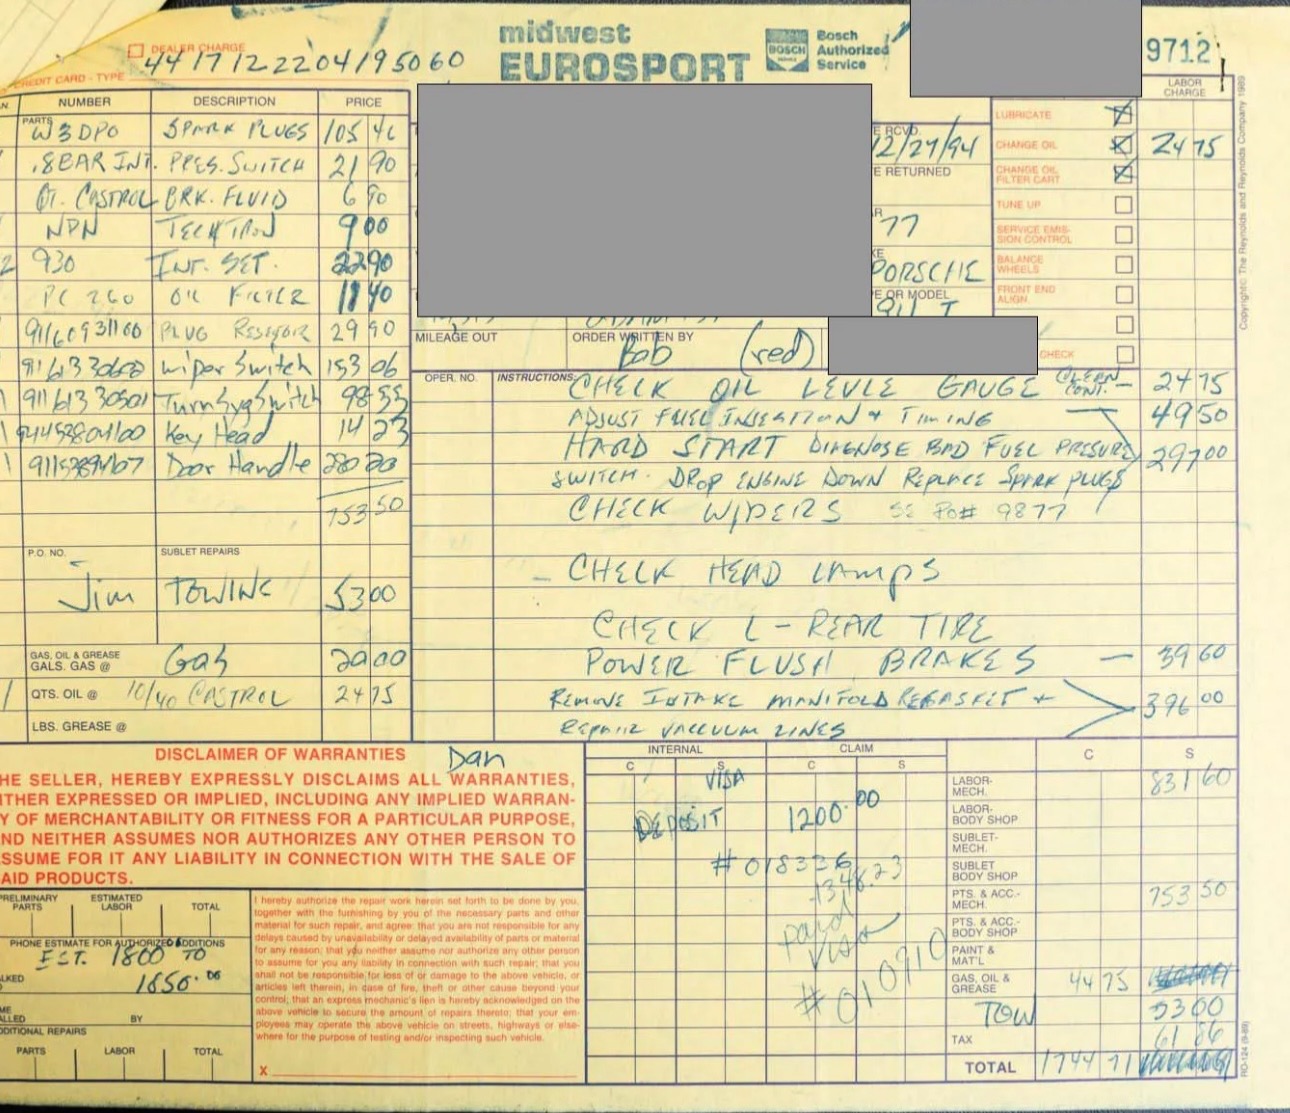 midwest
EUROSPORT
BOSCH SERVICE
Bosch Authorized Service
9712
DEALER CHARGE
4417122204195060
CREDIT CARD - TYPE
NUMBER DESCRIPTION PRICE
PARTS
W3DPO SPARK PLUGS 105 46
.8 BAR INT. PRES. SWITCH 21 90
QT. CASTROL BRK. FLUID 6 90
NPN TECHTRON 9 00
2 930 INT. SET. 22 90
PC 260 OIL FILTER 18 40
PLUG 29 90
Wiper Switch 153 06
1 Switch 98 55
1 Key Head 14 23
1 Door Handle
753 50
P.O. NO. SUBLET REPAIRS
Jim TOWING 53 00
GAS, OIL & GREASE
GALS. GAS @ Gas 20 00
QTS. OIL @ 10/40 CASTROL 24 75
LBS. GREASE @
E RCVD.
12/27/94
E RETURNED
77
PORSCHE
E OR MODEL
911 T
MILEAGE OUT
ORDER WRITTEN BY
Bob (red)
LABOR CHARGE
LUBRICATE
CHANGE OIL 24 75
CHANGE OIL FILTER CART
TUNE UP
SERVICE EMIS-
SION CONTROL
BALANCE WHEELS
FRONT END ALIGN.
CHECK
OPER. NO. INSTRUCTIONS:
CHECK OIL LEVLE GAUGE CLEAN CONT. — 24 75
ADJUST FUEL INJECTION + TIMING — 49 50
HARD START DIAGNOSE BAD FUEL PRESSURE 297 00
SWITCH. DROP ENGINE DOWN REPLACE SPARK PLUGS
CHECK WIPERS SE RO# 9877
- CHECK HEAD LAMPS
CHECK L-REAR TIRE
POWER FLUSH BRAKES — 39 60
REMOVE INTAKE MANIFOLD REGASKET + 396 00
REPAIR VACCUUM LINES
Copyright© The Reynolds and Reynolds Company 1989
DISCLAIMER OF WARRANTIES
Dan
HE SELLER, HEREBY EXPRESSLY DISCLAIMS ALL WARRANTIES,
ITHER EXPRESSED OR IMPLIED, INCLUDING ANY IMPLIED WARRAN-
Y OF MERCHANTABILITY OR FITNESS FOR A PARTICULAR PURPOSE,
ND NEITHER ASSUMES NOR AUTHORIZES ANY OTHER PERSON TO
SSUME FOR IT ANY LIABILITY IN CONNECTION WITH THE SALE OF
AID PRODUCTS.
PRELIMINARY PARTS ESTIMATED LABOR TOTAL
PHONE ESTIMATE FOR AUTHORIZED ADDITIONS
EST. 1800 TO
1850.00
BY
DDITIONAL REPAIRS
PARTS LABOR TOTAL
I hereby authorize the repair work herein set forth to be done by you,
together with the furnishing by you of the necessary parts and other
material for such repair, and agree: that you are not responsible for any
delays caused by unavailability or delayed availability of parts or material
for any reason; that you neither assume nor authorize any other person
to assume for you any liability in connection with such repair; that you
shall not be responsible for loss of or damage to the above vehicle, or
articles left therein, in case of fire, theft or other cause beyond your
control; that an express mechanic's lien is hereby acknowledged on the
above vehicle to secure the amount of repairs thereto; that your em-
ployees may operate the above vehicle on streets, highways or else-
where for the purpose of testing and/or inspecting such vehicle.
X
INTERNAL CLAIM
C S C S
VISA
DEPOSIT 1200.00
#018336
1348.23
paid
Visa
#010910
C S
LABOR-MECH. 831 60
LABOR-BODY SHOP
SUBLET-MECH.
SUBLET BODY SHOP
PTS. & ACC.-MECH. 753 50
PTS. & ACC.-BODY SHOP
PAINT & MAT'L
GAS, OIL & GREASE 44 75
TOW 53 00
TAX 61 86
TOTAL 1744 71
RO-124 (9-89)